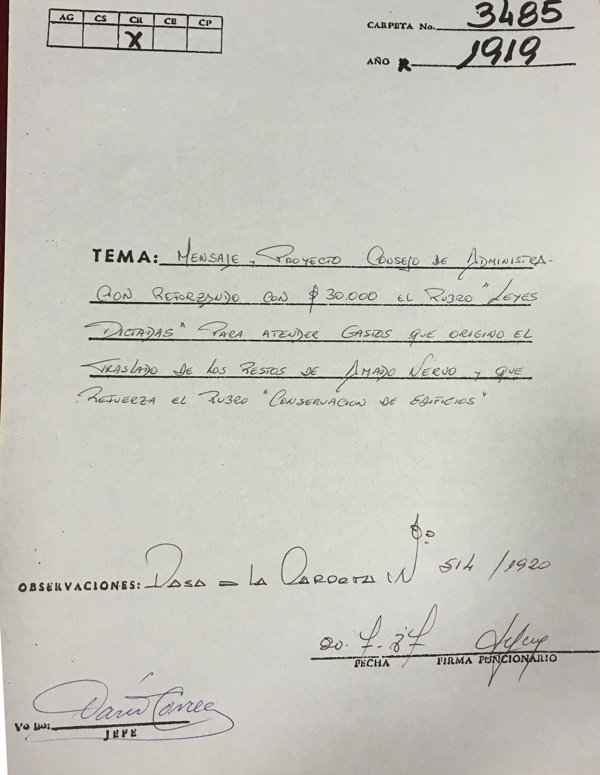 AG CS CR CE CP
X
CARPETA No. 3485
AÑO 1919
TEMA: MENSAJE Y PROYECTO CONSEJO DE ADMINISTRA-
CION REFORZANDO CON $ 30.000 EL RUBRO "LEYES
DICTADAS" PARA ATENDER GASTOS QUE ORIGINO EL
TRASLADO DE LOS RESTOS DE AMADO NERVO Y QUE
REFUERZA EL RUBRO "CONSERVACION DE EDIFICIOS"
OBSERVACIONES: PASA A LA CARPETA Nº 514 /1920
FECHA FIRMA FUNCIONARIO
Darío Correa
Vo Bo:
JEFE